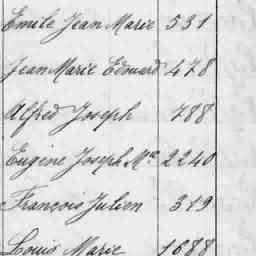 Emile Jean Marie 531
Jean Marie Edouard 478
Alfred Joseph 788
Eugène Joseph Mie 2240
François Julien 319
Louis Marie 1688